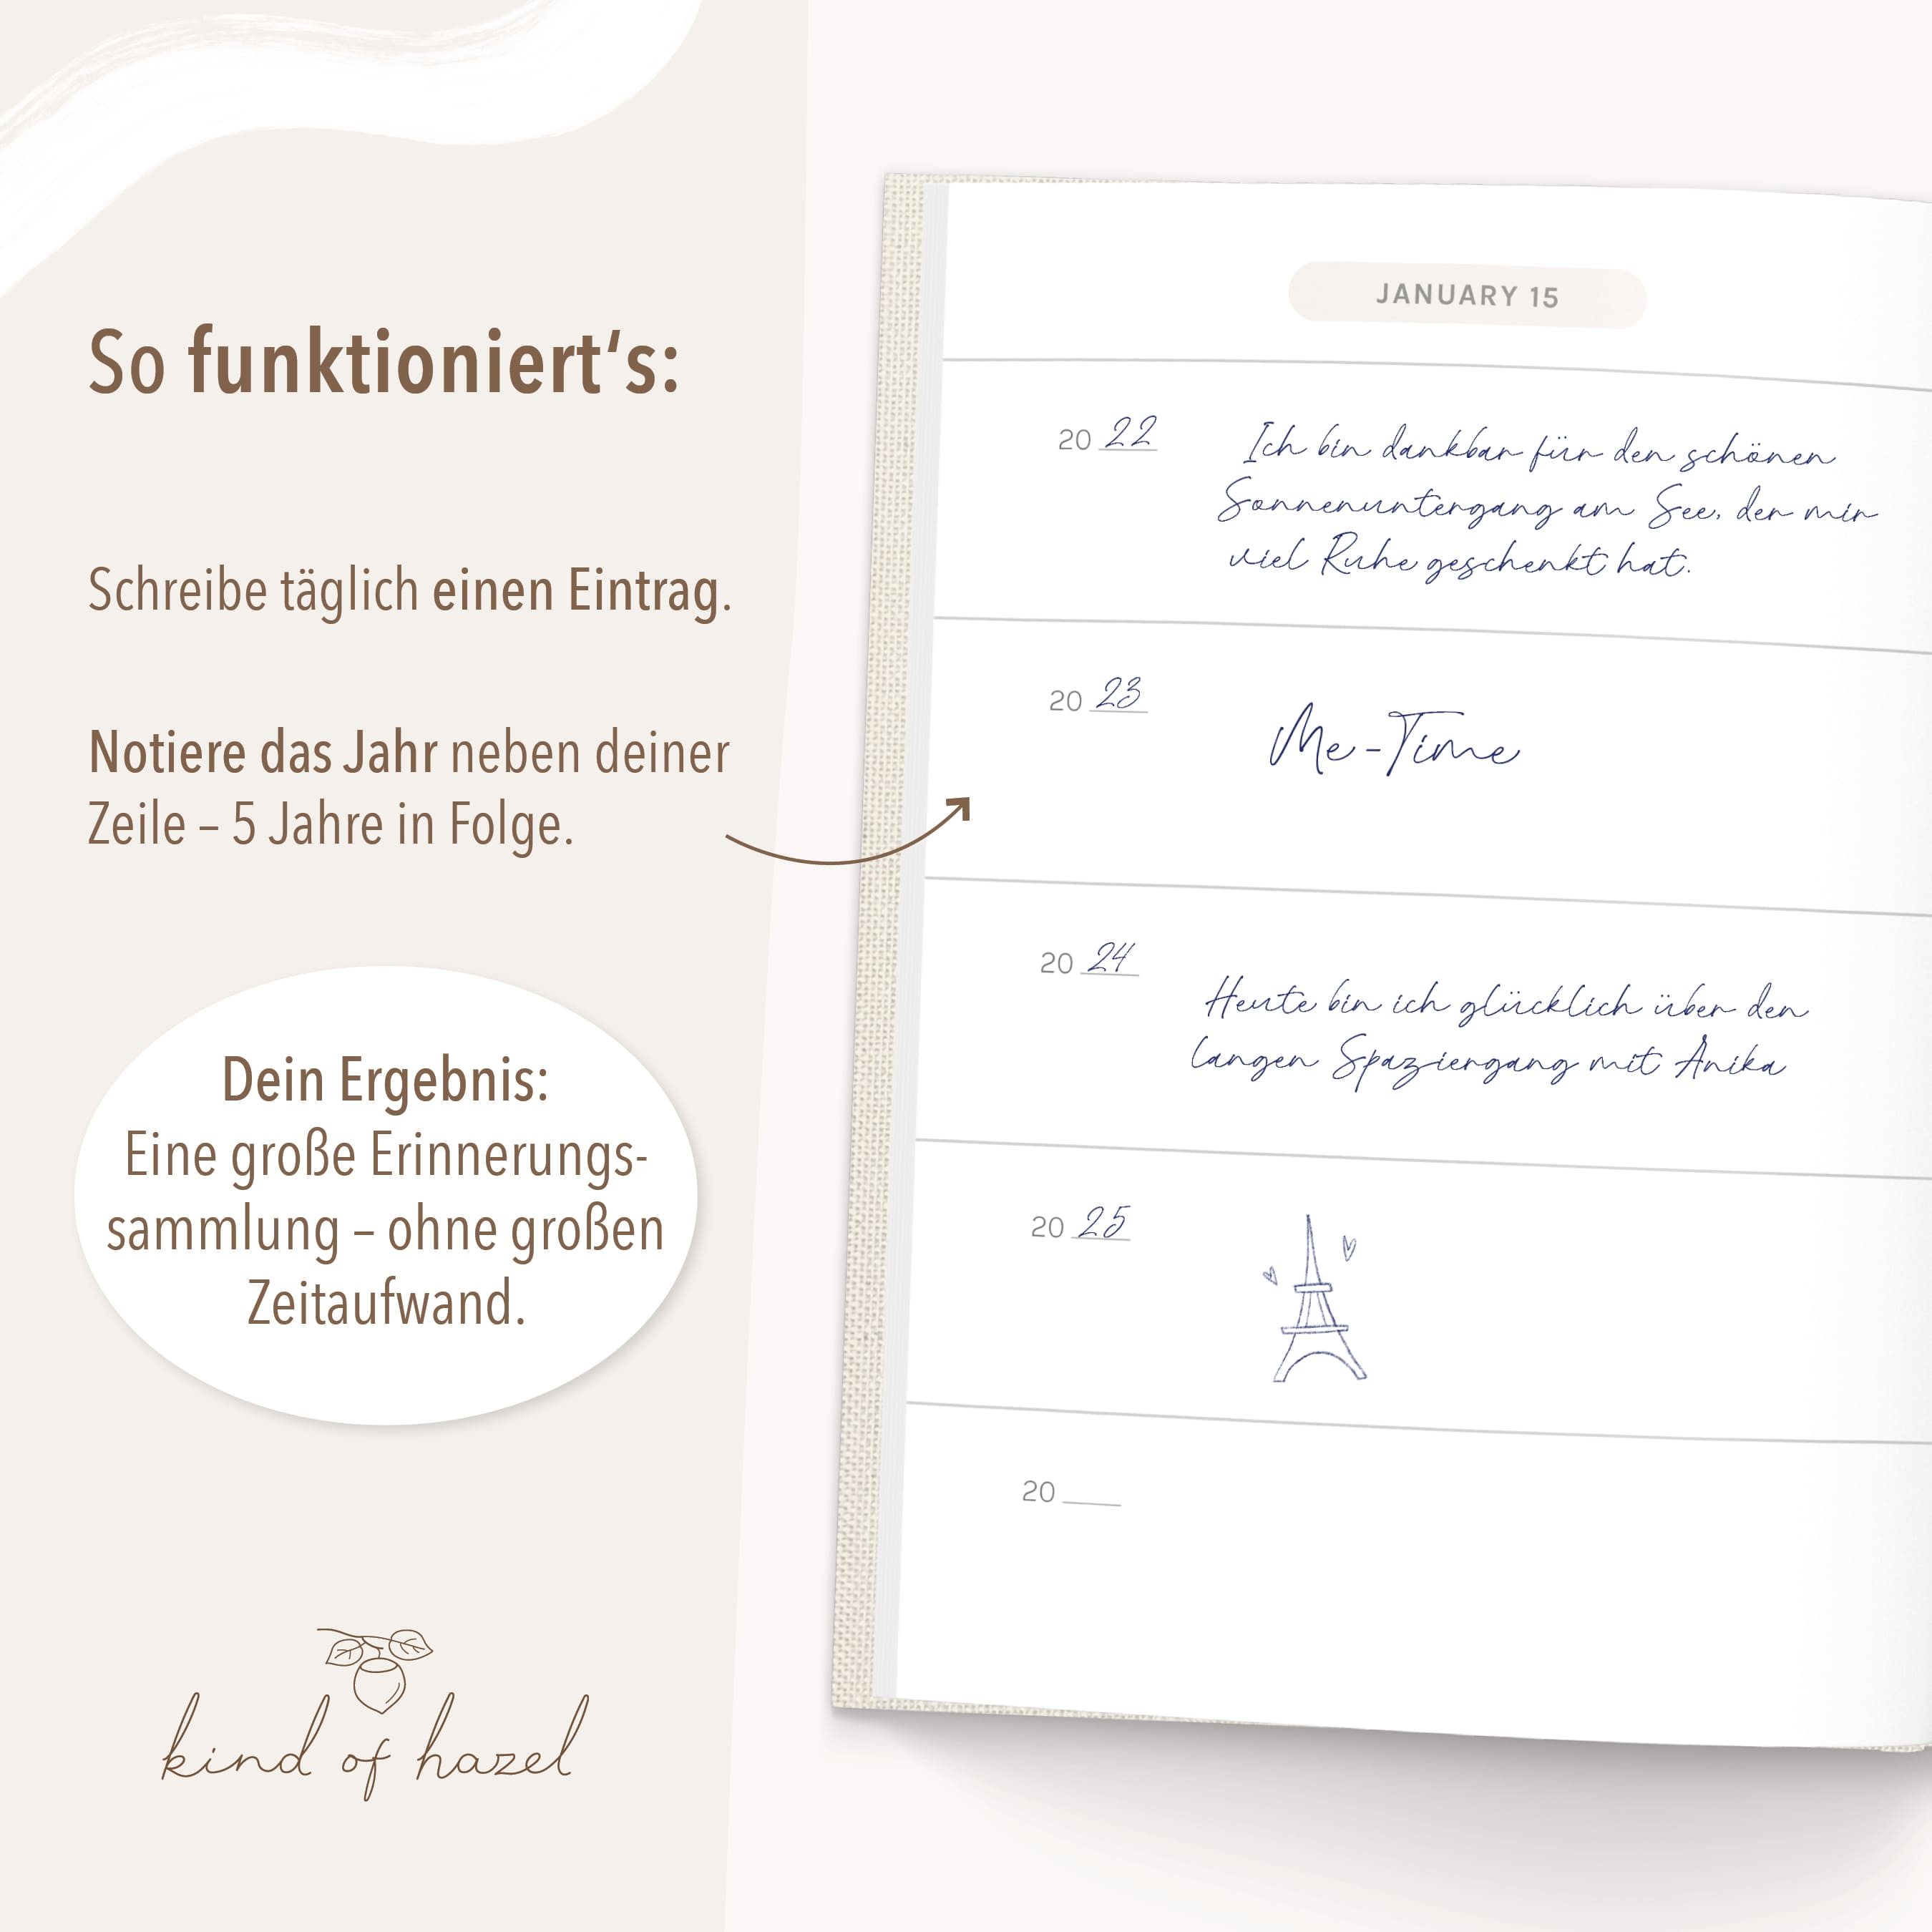 So funktioniert‘s:
Schreibe täglich einen Eintrag.
Notiere das Jahr neben deiner
Zeile – 5 Jahre in Folge.
Dein Ergebnis:
Eine große Erinnerungs-
sammlung – ohne großen
Zeitaufwand.
kind of hazel
JANUARY 15
20 22
Ich bin dankbar für den schönen
Sonnenuntergang am See, der mir
viel Ruhe geschenkt hat.
20 23
Me-Time
20 24
Heute bin ich glücklich über den
langen Spaziergang mit Anika
20 25
20 __